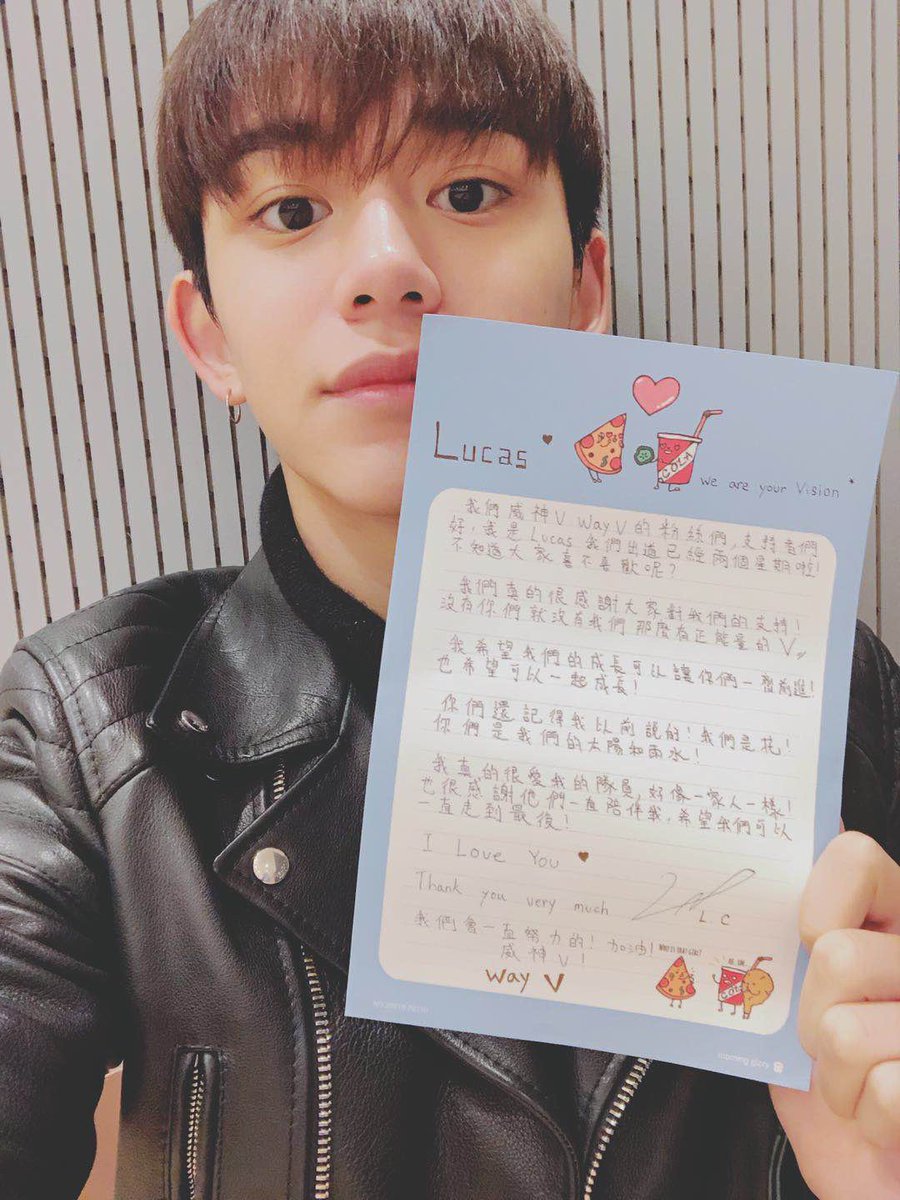 Lucas ♥
COLA
we are your Vision *
我們威神V WayV的粉絲們,支持者們
好,我是Lucas 我們出道已經兩個星期啦!
不知道大家喜不喜歡呢?
我們真的很感謝大家對我們的支持!
沒有你們就沒有我們 那麼有正能量的V
我希望我們的成長可以讓你們一齊前進!
也希望可以一起成長!
你們還記得我以前說的!我們是花!
你們是我們的太陽和雨水!
我真的很愛我的隊員,好像一家人一樣!
也很感謝他們一直陪伴我,希望我們可以
一直走到最後!
I Love You ♥
Thank you very much
LC
我們會一直努力的! 加油!
威神V!
way V
WHO IS THAT GIRL?
morning glory